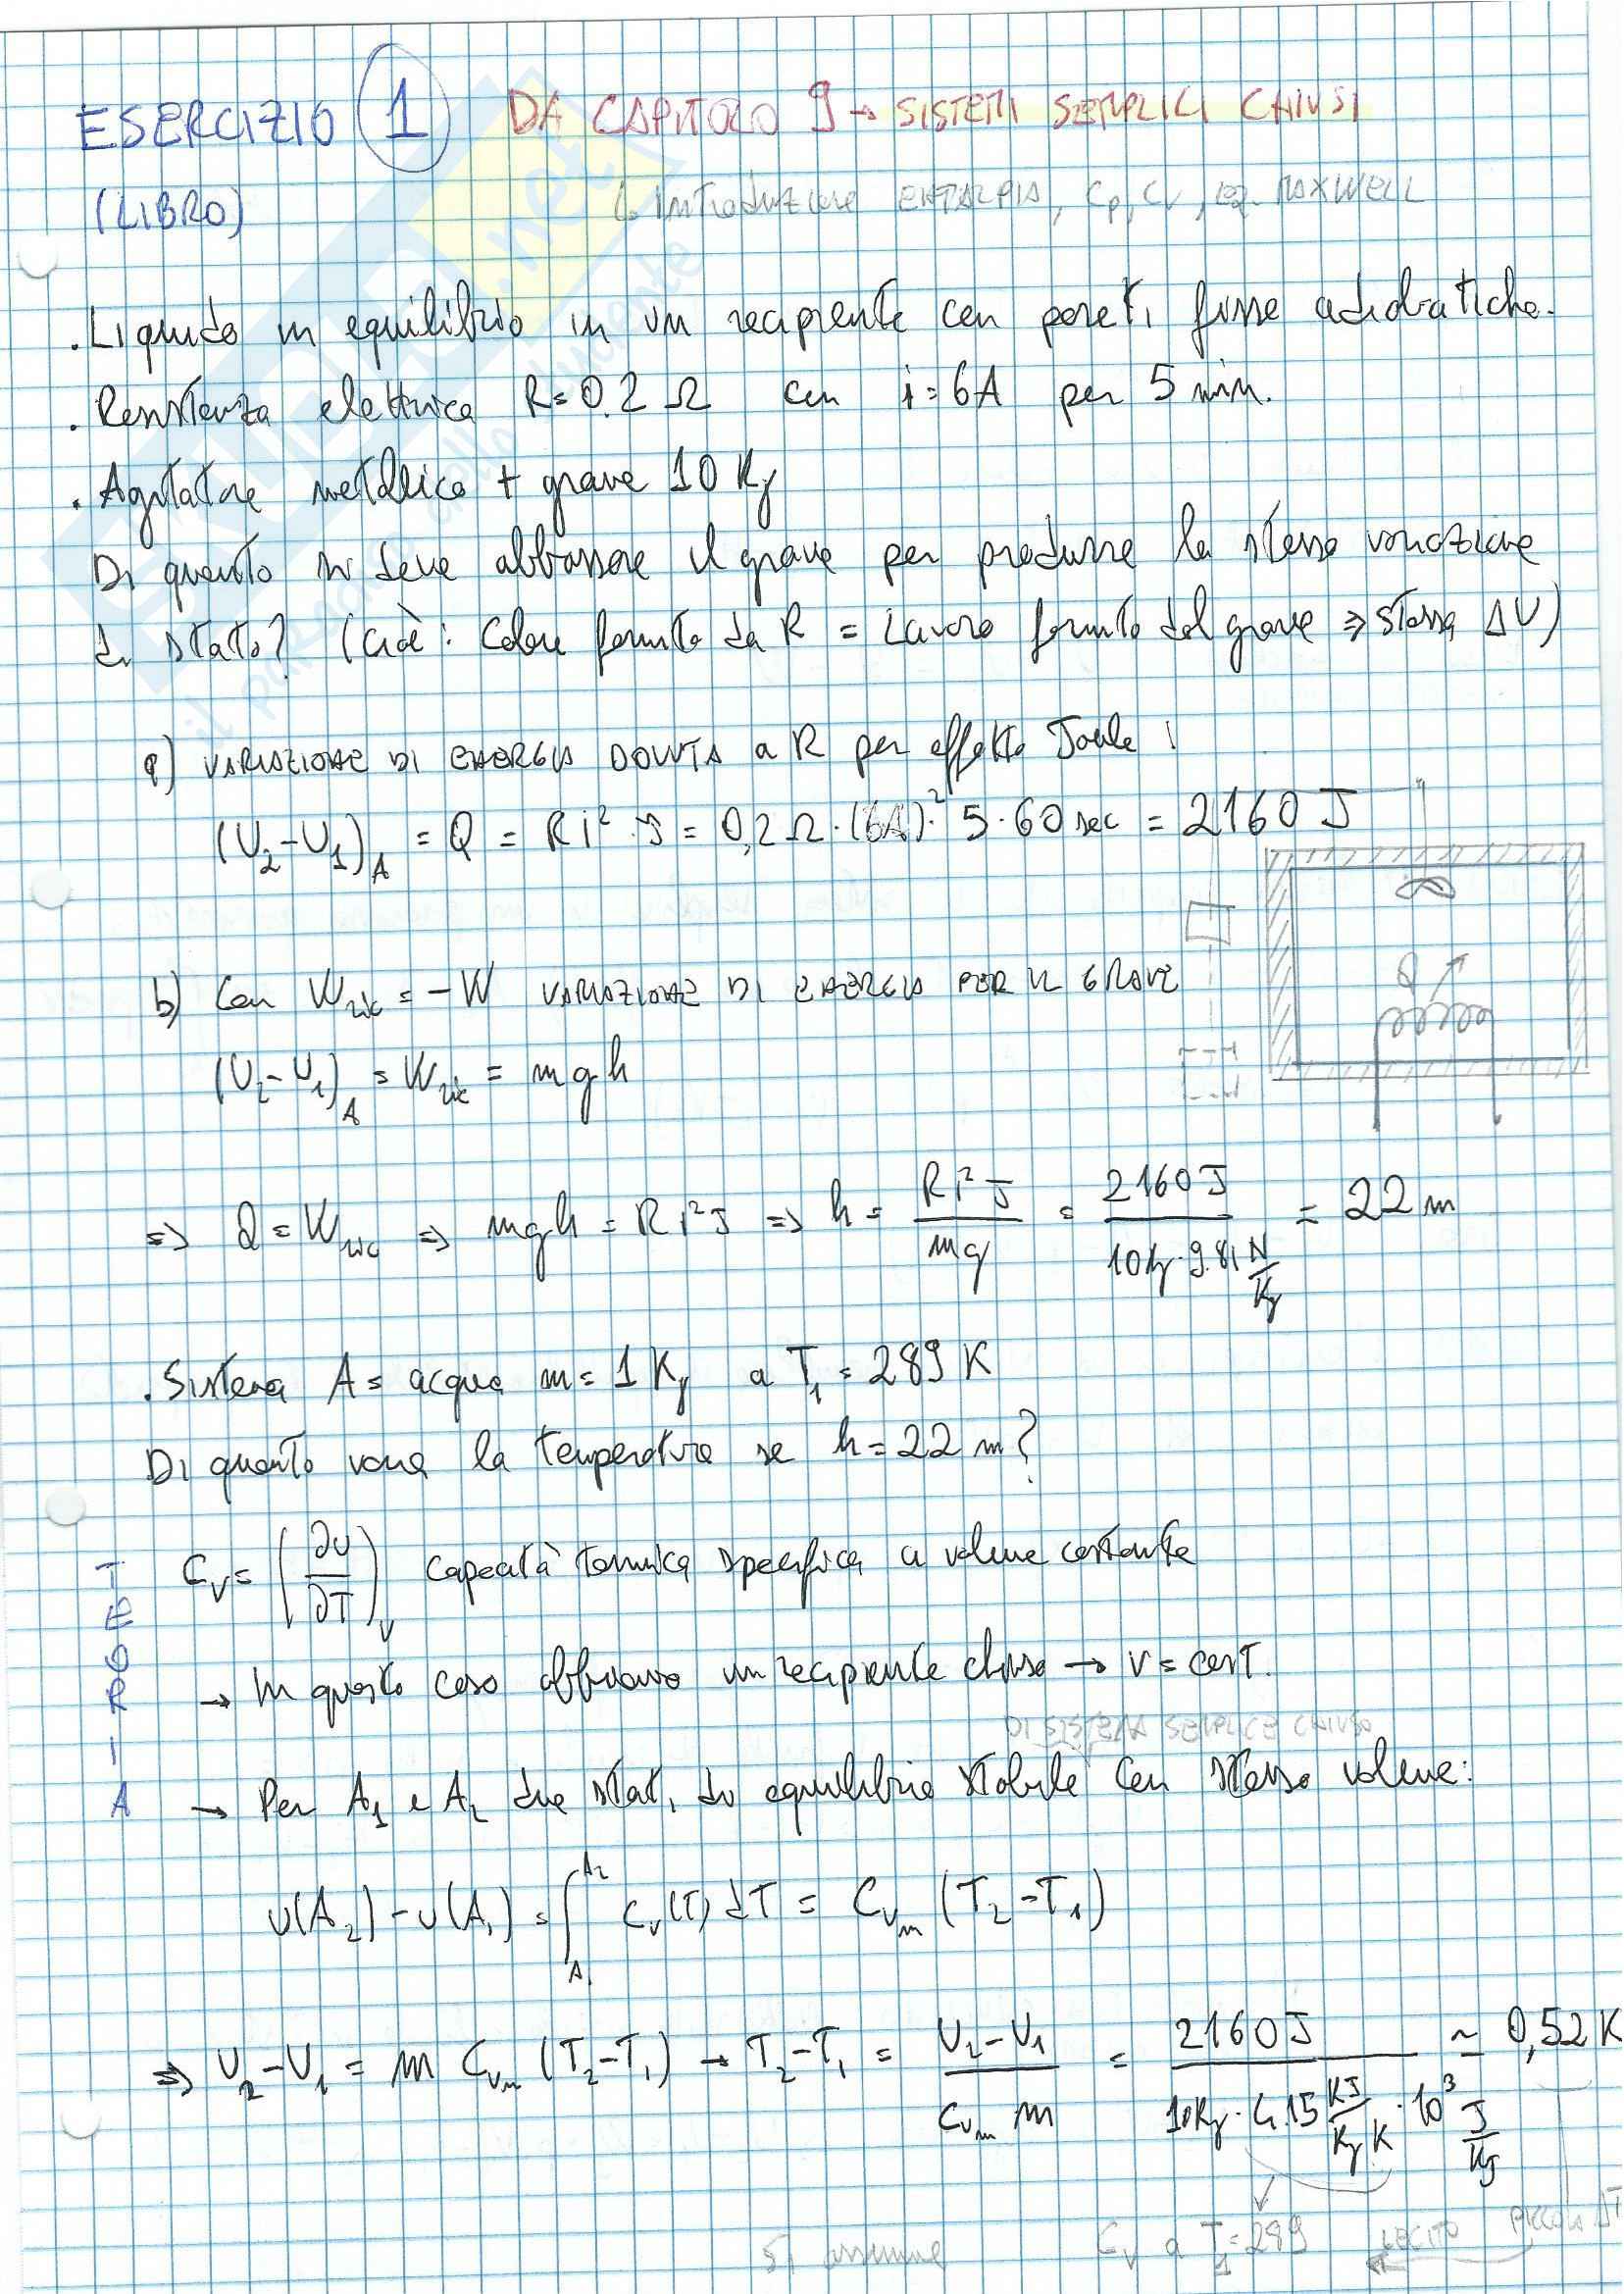 ESERCIZIO 1 DA CAPITOLO 9 → SISTEMI SEMPLICI CHIUSI
(LIBRO) ↳ introduzione ENTALPIA, Cp, Cv, eq. MAXWELL
. Liquido in equilibrio in un recipiente con pareti fisse adiabatiche.
. Resistenza elettrica R= 0.2 Ω con i= 6A per 5 min.
. Agitatore metallico + grave 10 Kg
Di quanto si deve abbassare il grave per produrre la stessa variazione
di stato? (cioè: Calore fornito da R = Lavoro fornito dal grave ⇒ stessa ΔU)
a) VARIAZIONE DI ENERGIA DOVUTA a R per effetto Joule:
(U₂-U₁)_A = Q = Ri²·J = 0,2 Ω·(6A)²· 5·60 sec = 2160 J
b) Con W_ric = -W VARIAZIONE DI ENERGIA PER IL GRAVE
Q
(U₂-U₁)_A = W_ric = mgh
⇒ Q = W_ric ⇒ mgh = Ri²J ⇒ h = Ri²J / mg = 2160 J / 10 Kg·9.81 N/Kg = 22 m
. Sistema A= acqua m= 1 Kg a T₁= 289 K
Di quanto varia la temperatura se h= 22 m?
TEORIA
Cv= (∂u/∂T)_v capacità termica specifica a volume costante
→ In questo caso abbiamo un recipiente chiuso → V= cost.
DI SISTEMA SEMPLICE CHIUSO
→ Per A₁ e A₂ due stati di equilibrio stabile con stesso volume:
u(A₂) - u(A₁) = ∫_A₁^A₂ cv(T) dT = Cvm (T₂-T₁)
⇒ U₂-U₁ = m Cvm (T₂-T₁) → T₂-T₁ = U₂-U₁ / Cvm m = 2160 J / 10Kg · 4.15 KJ/Kg K · 10³ J/KJ ≃ 0,52 K
Si assume Cv a T₁=289 LECITO PICCOLA ΔT